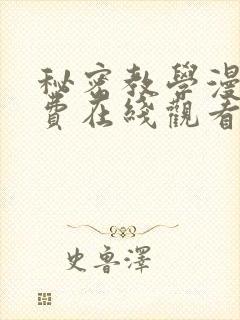 秘密教學漫
費在綫觀看
史魯澤